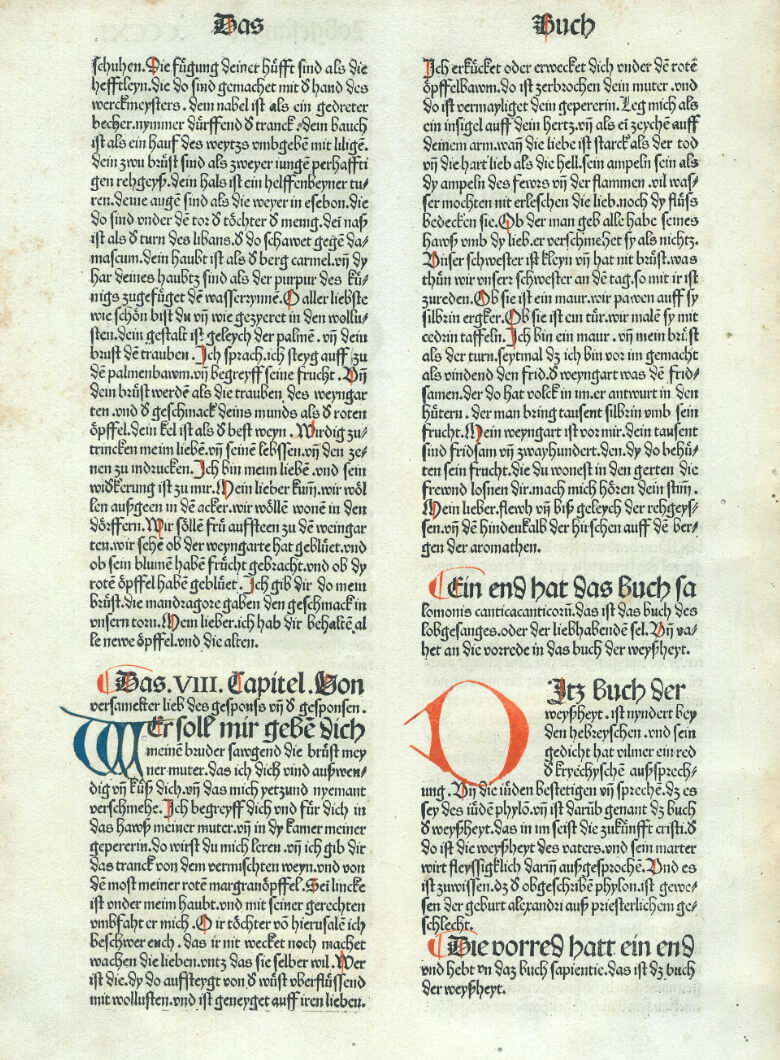 Das Buch
schuhen. Die fügung deiner hüfft sind als die
hefftleyn. die do sind gemachet mit d̄ hand des
werckmeysters. dein nabel ist als ein gedreter
becher. nymmer dürffend d̄ tranck. dein bauch
ist als ein hauf des weytzs vmbgeben mit liligē.
dein zwu brüst sind als zweyer iungē perhaffti
gen rehgeyß. dein hals ist ein helffenbeyner tu-
ren. deine augē sind als die weyer in esebon. die
do sind vnder dē tor d̄ töchter d̄ menig. deī naß
ist als d̄ turn des libans. d̄ do schawet gegē da-
mascum. dein haubt ist als d̄ berg carmel. vn̄ dy
har deines haubtz sind als der purpur des kü-
nigs zugefüget dē wasserrynnē. O aller liebste
wie schön bist du vn̄ wie gezyeret in den wollu-
sten. dein gestalt ist geleych der palmē. vn̄ dein
brust dē trauben. Ich sprach. ich steyg auff zu
dē palmenbawm. vn̄ begreyff seine frucht. Vn̄
dein brüst werdē als die trauben des weyngar
ten. vnd d̄ geschmack deins munds als d̄ roten
öpffel. dein kel ist als d̄ best weyn. Wirdig zu-
trincken meim liebē. vn̄ seinē lebssen. vn̄ den ze-
nen zu indrucken. Ich bin meim liebē. vnd sein
wid̄kerung ist zu mir. Mein lieber kum̄. wir wöl
len außgeen in dē acker. wir wöllē wonē in den
dörffern. Wir söllē frü auffsteen zu dē weingar
ten. wir sehē ob der weyngarte hat geblüet. vnd
ob sein blumē habēn frücht gebracht. vnd ob dy
rotē öpffel habē geblüet. Ich gib dir do mein
brüst. die mandragore gaben den geschmack in
vnsern torn. Mein lieber. ich hab dir behaltē al
le newe öpffel. vnd die alten.
Das. VIII. Capitel. Von
versamelter lieb des gesponß vn̄ d̄ gesponsen.
WEr soll mir gebē dich
meinē bruder sawgend die brüst mey
ner muter. das ich dich vind außwen-
dig vn̄ küß dich. vn̄ das mich yetzund nyemant
verschmehe. Ich begreyff dich vnd für dich in
das hawß meiner muter. vn̄ in dy kamer meiner
gepererin. do wirst du mich leren. vn̄ ich gib dir
das tranck von dem vermischten weyn. vnd von
dē most meiner rotē margranöpffel. Sei lincke
ist vnder meim haubt. vnd mit seiner gerechten
vmbfaht er mich. O ir töchter vō hierusalē ich
beschwer euch. das ir nit wecket noch machet
wachen die lieben. vntz das sie selber wil. Wer
ist die. dy do auffsteygt von d̄ wüst vberflüssend
mit wollusten. vnd ist geneyget auff iren lieben.
Ich erkücket oder erwecket dich vnder dē rotē
öpffelbawm. do ist zerbrochen dein muter. vnd
do ist vermayliget dein gepererin. Leg mich als
ein insigel auff dein hertz. vn̄ als eī zeychē auff
deinem arm. wan̄ die liebe ist starck als der tod
vn̄ die hart lieb als die hell. sein ampeln sein als
dy ampeln des fewrs vn̄ der flammen. vil was-
ser mochten nit erleschen die lieb. noch dy flüß
bedecken sie. Ob der man geb alle habe seines
hawß vmb dy lieb. er verschmehet sy als nichtz.
Vnser schwester ist kleyn vn̄ hat nit brüst. was
thün wir vnserr schwester an dē tag. so mit ir ist
zureden. Ob sie ist ein maur. wir pawen auff sy
silbrin ergker. Ob sie ist ein tür. wir malē sy mit
cedrin taffeln. Ich bin ein maur. vn̄ mein brüst
als der turn. seytmal dz ich bin vor im gemacht
als vindend den frid. d̄ weyngart was dē frid-
samen. der do hat volck in im. er antwurt in den
hütern. der man bring tausent silbrin vmb sein
frucht. Mein weyngart ist vor mir. dein tausent
sind fridsam vn̄ zwayhundert. den. dy do behü-
ten sein frucht. die du wonest in den gerten die
frewnd losnen dir. mach mich hören dein stim̄.
Mein lieber. flewh vn̄ biß geleych der rehgeys-
sen. vn̄ dē hindenkalb der hirschen auff dē ber-
gen der aromathen.
Ein end hat das Buch sa
lomonis canticacanticorū. das ist das buch des
lobgesanges. oder der liebhabendē sel. Vn̄ va-
het an die vorrede in das buch der weyßheyt.
DItz Buch der
weyßheyt. ist nyndert bey
den hebreyschen. vnd sein
gedicht hat vilmer ein red
d̄ kryechyschē außsprech-
ung. Vn̄ die iüden bestetigen vn̄ sprechē. dz es
sey des iüdē phylō. vn̄ ist darūb genant dz buch
d̄ weyßheyt. das in im seist die zukünfft cristi. d̄
do ist die weyßheyt des vaters. vnd sein marter
wirt fleyssigklich darin̄ außgesprochē. Vnd es
ist zuwissen. dz d̄ obgeschribē phylon. ist gewe-
sen der geburt alexandri auß priesterlichem ge-
schlecht.
Die vorred hatt ein end
vnd hebt vn daz buch sapientie. das ist dz buch
der weyßheyt.